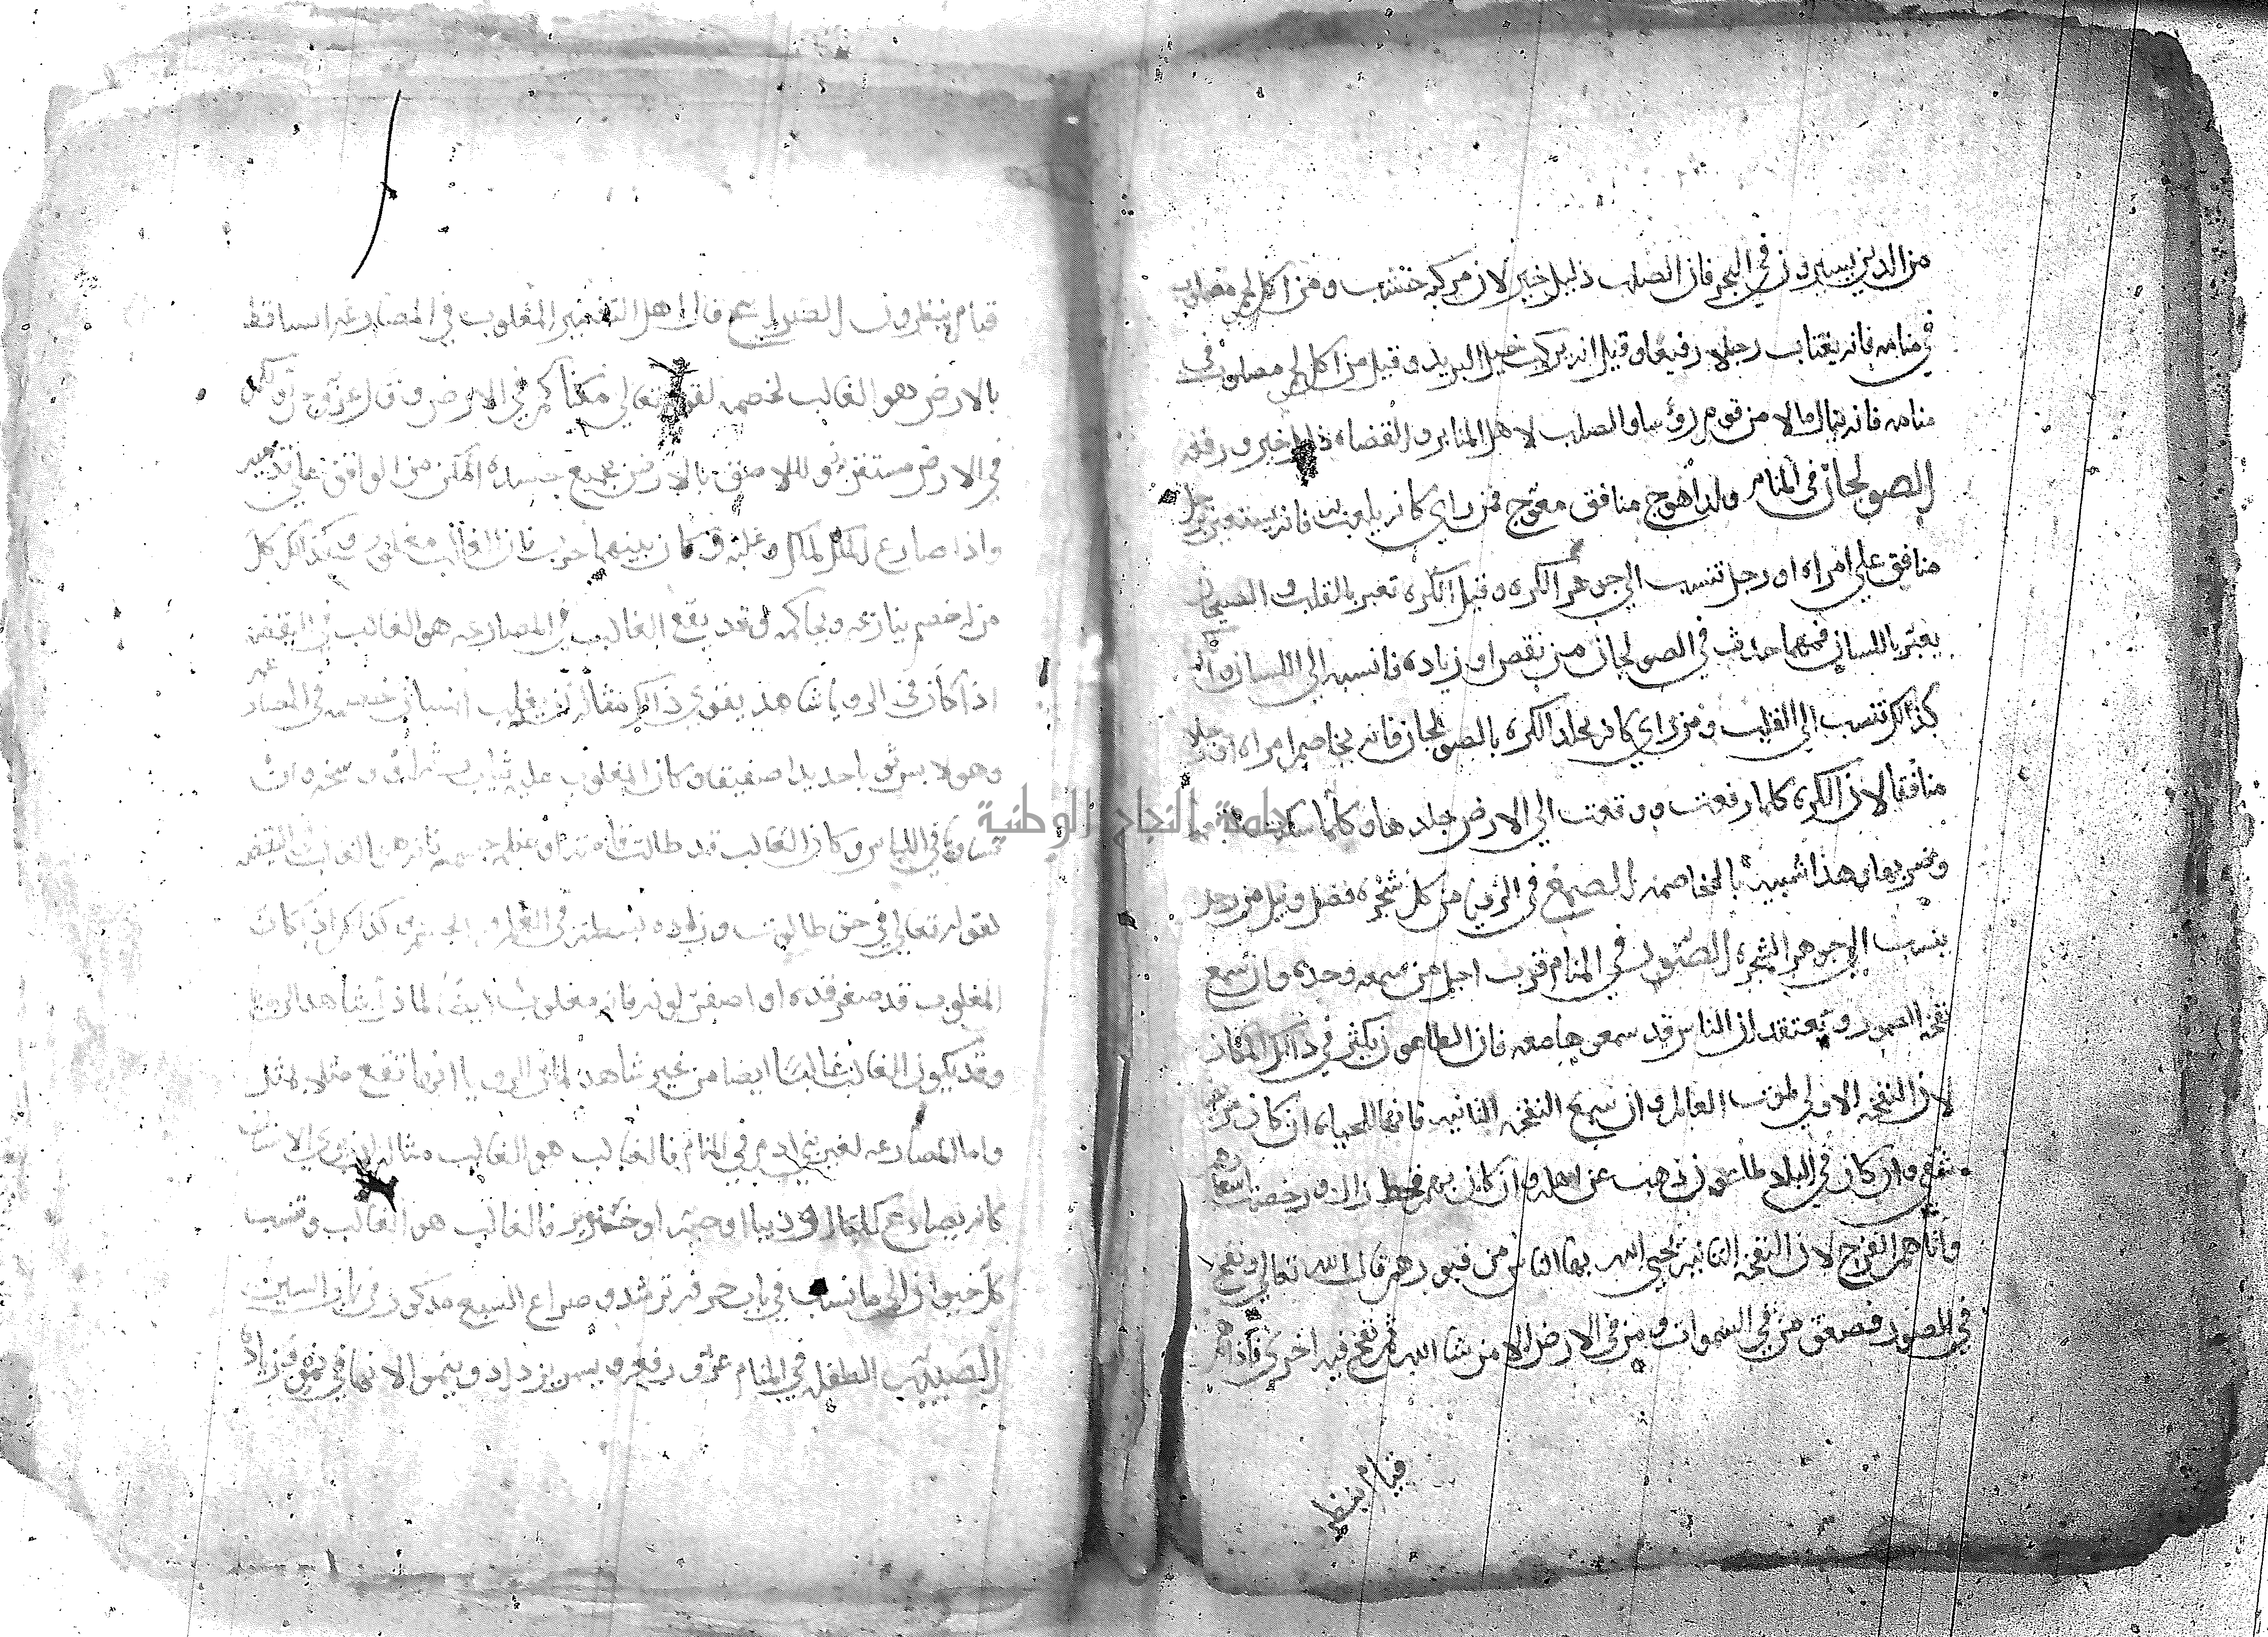 من الذين يسيرون في البحر فان الصلب دليل خير لان مركبه خشب ومن اكل لحم مصلوب
في منامه فانه يغتاب رجلا رفيعا وقيل انه يركب خيل البريد وقيل من اكل لحم مصلوب في
منامه فانه ينال مالا من قوم رؤسا والصلب لاهل المنابر والقضاه دليل خير ورفعه
الصولجان في المنام ولد اهوج منافق معوج فمن راي كانه يلعب به فانه يستعين برجل
منافق علي امراه او رجل تنسب الي جوهر الكره وقيل الكره تعبر بالقلب والصولجان
يعبر باللسان فمهما حدث في الصولجان من نقص او زياده فانسبه الي اللسان والكره
كذلك تنسب الي القلب ومن راي كانه يجلد الكره بالصولجان فانه يخاصم امراه او رجلا
منافقا لان الكره كلما رفعت ووقعت الي الارض جلدها وكلما سكنت
وضربها وهذا شبيه بالمخاصمه الصمغ في الرؤيا من كل شجره فضل ونيل من رجل
ينسب الي جوهر الشجره الصور في المنام قرب اجل من سمعه وحده وان سمع
نفخه الصور ويعتقد ان الناس قد سمعوها معه فان الطاعون يكثر في ذلك المكان
لان النفخه الاولي لموت العالم وان سمع النفخه الثانيه فانها للحياه ان كان مريضا
شفي وان كان في البلد طاعون ذهب عن اهله وان كان بهم قحط زال ورخصت اسعارهم
واتاهم الفرج لان النفخه الثانيه يحيي الله بها الناس من قبورهم قال الله تعالي ونفخ
في الصور فصعق من في السموات ومن في الارض الا من شا الله ثم نفخ فيه اخري فاذا هم
قيام ينظر
قيام ينظرون الصراع قال اهل التعبير المغلوب في المصارعه الساقط
بالارض هو الغالب لخصمه لقوله تعالي مكناكم في الارض وقال عز وجل ولكم
في الارض مستقر واللاصق بالارض بجميع جسده امكن من الواقف علي قدميه
واذا صارع ملك لملك وغلبه وكان بينهما حرب فان الغالب مغلوب وكذلك كل
من له خصم ينازعه ويحاكمه وقد يقع الغالب في المصارعه هو الغالب في اليقظه
اذا كان في الرويا شاهد يقوي ذلك مثاله ان يغلب انسان خصمه في المصارعه
وهو لابس ثوبا جديدا صفيقا وكان المغلوب عليه ثياب
في اللباس وكان الغالب قد طالت قامته او عظم جسمه فانه هو الغالب في اليقظه
لقوله تعالي في حق طالوت وزاده بسطة في العلم والجسم وكذلك اذا كان
المغلوب قد صغر قده او اصفر لونه فانه مغلوب ايضا لما ذل شاهد الرويا
وقد يكون الغالب غالبا ايضا من غير شاهد لان الرويا انما تقع مثلا بمثل
واما المصارعه لغير بني ادم في المنام فالغالب هو الغالب مثاله ان يري الانسان
كانه يصارع كلبا او ذيبا او حيه او خنزير فالغالب هو الغالب وتنسب
كل حيوان الي ما نسب في باب حرفه ترشد وصراع السبع مذكور في باب السين
الصبيه الطفله في المنام عز ورفعه ويسر يزداد وينمو لانها في نمو وزياده
جامعة النجاح الوطنية